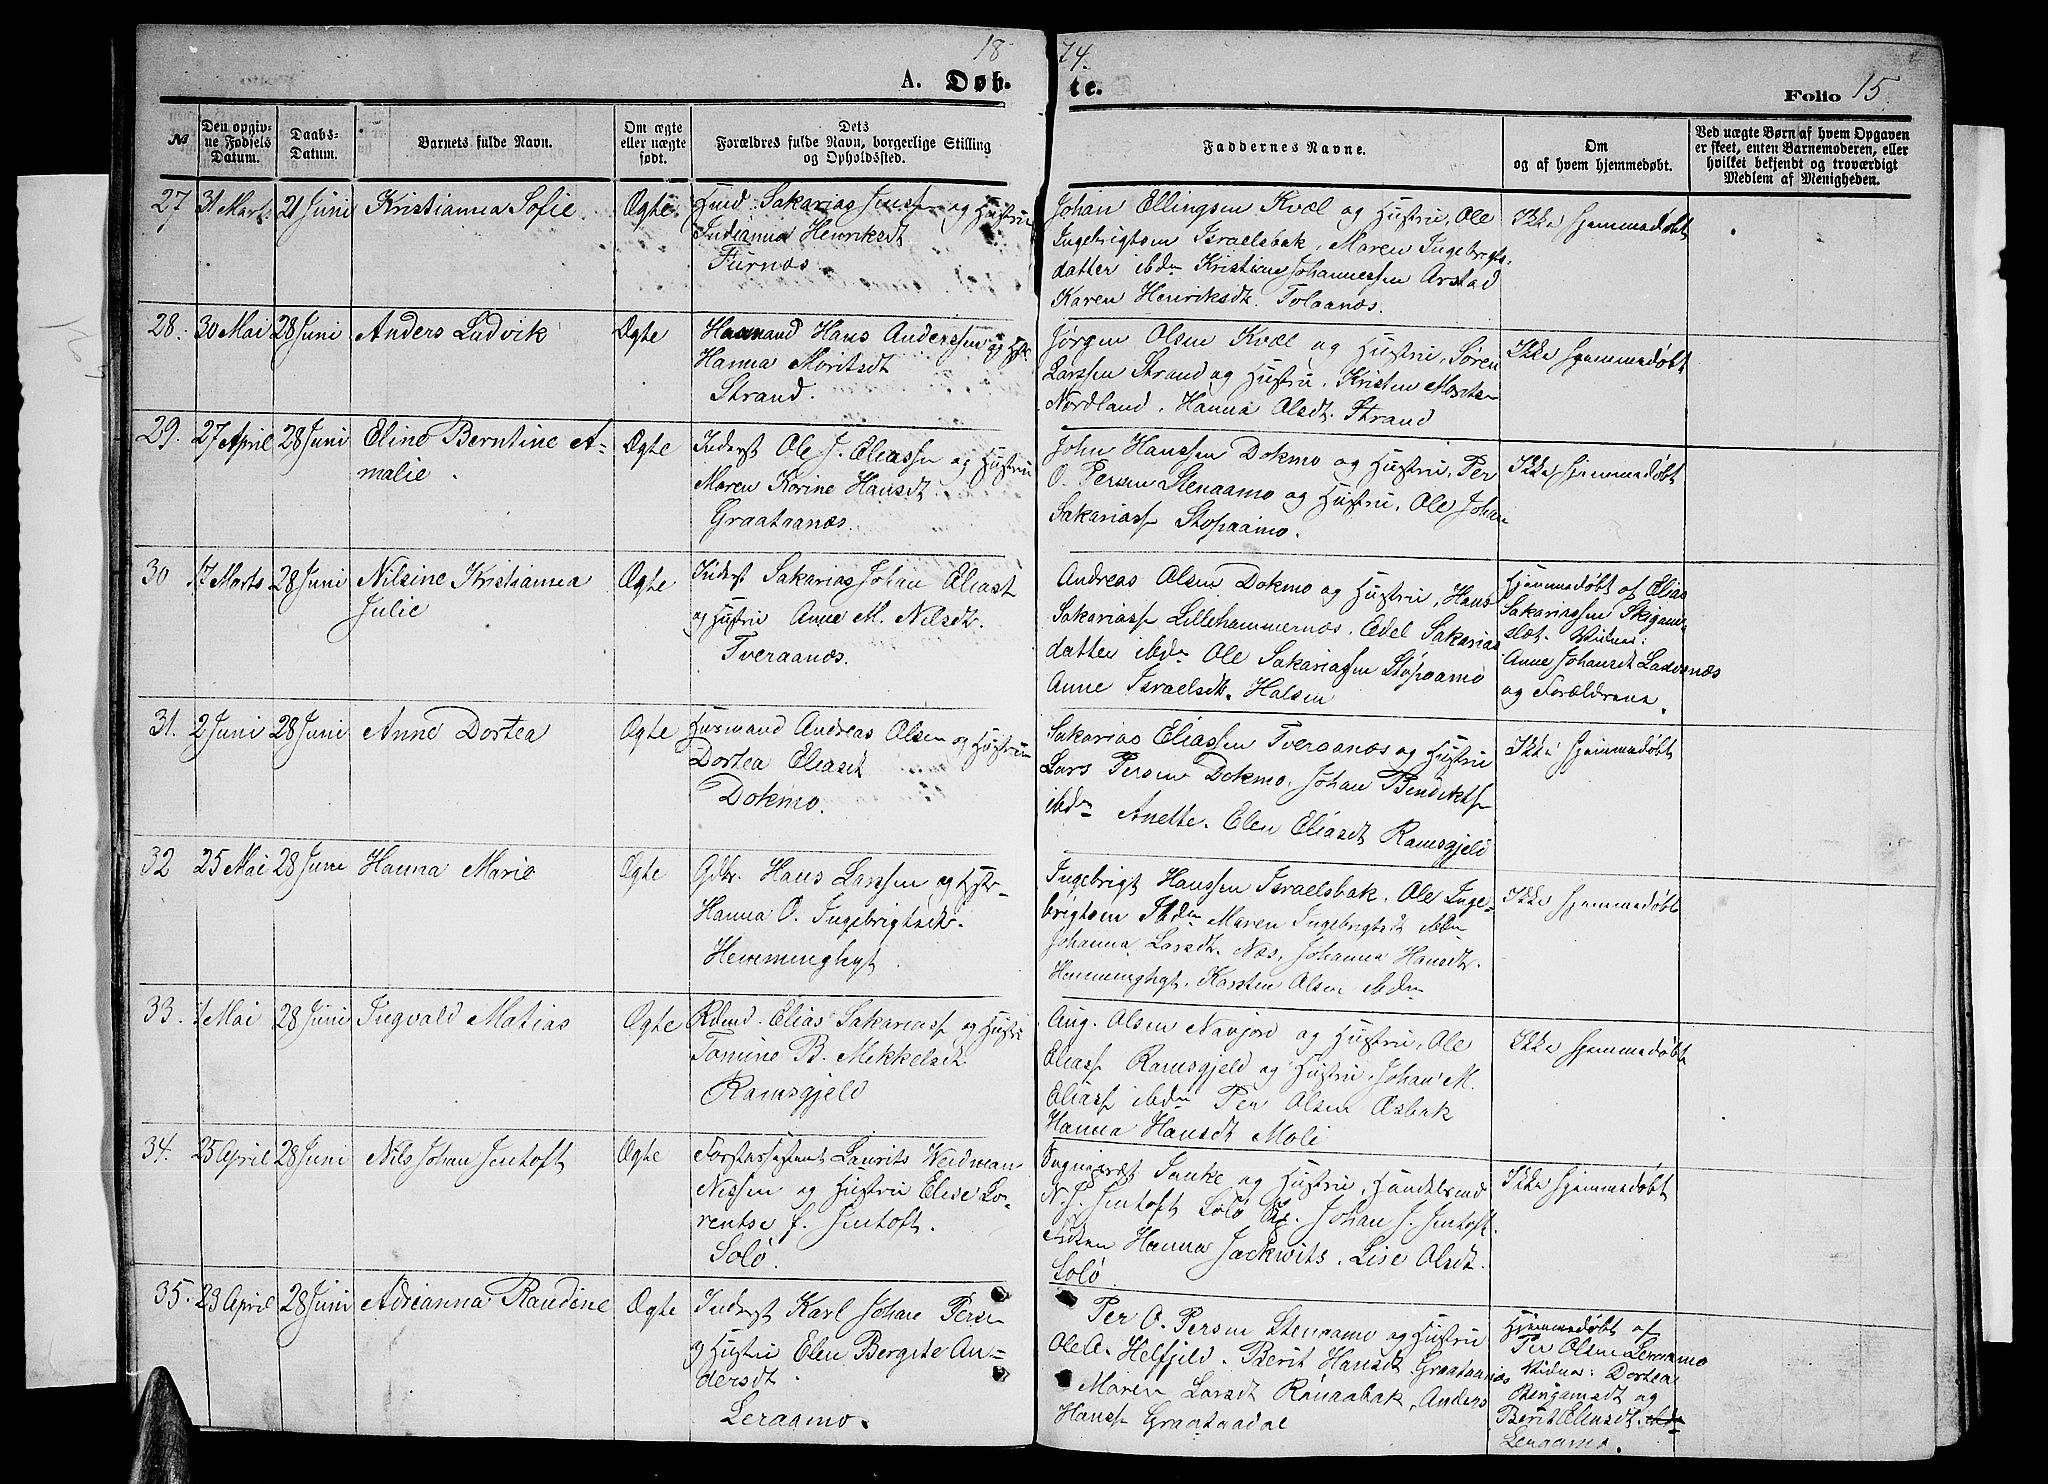 18 74.
A. Døb. te.
Folio 15.
№
Den opgiv-
ne Fødsels
Datum.
Daabs-
Datum.
Barnets fulde Navn.
Om ægte
eller uægte
født.
Dets
Forældres fulde Navn, borgerlige Stilling
og Opholdssted.
Faddernes Navne.
Om
og af hvem hjemmedøbt.
Ved uægte Børn af hvem Opgaven
er skeet, enten Barnemoderen, eller
hvilket bekjendt og troværdigt
Medlem af Menigheden.
27 31 Marts 21 Juni Kristianna Sofie. Ægte.
Sakarias Jenss. og Hustru
Indianna Henriksdt
Furnæs
Johan Ellingsen Kvæl og Hustru, Ole
Ingebrigtsen Israelsbak, Maren Ingebrigts-
datter ibdm Kristian Johannessen Arstad
Karen Henriksdt. Tolaanæs.
Ikke hjemmedøbt
28. 30 Mai 28 Juni Anders Ludvik Ægte
Husmand Hans Anderssen og Hstr.
Hanna Moritsdt
Strand.
Jørgen Olsen Kvæl og Hustru, Søren
Larssen Strand og Hustru, Kristen Moritsen
Nordland, Hanna Olsdt. Strand
Ikke hjemmedøbt
29. 27 April 28 Juni Eline Berntine A-
malie. Ægte
Inderst Ole J. Eliassen og Hustru
Maren Karine Hansdt.
Graataanæs.
John Hanssen Dokmo og Hustru, Per
O. Persen Stenaamo og Hustru, Ole Johan
Sakariass. Stopaamo.
Ikke hjemmedøbt
30 17 Marts 28 Juni Nilsine Kristianna
Julie Ægte
Inderst Sakarias Johan Eliass.
og Hustru Anne M. Nilsdtr.
Tveraanæs.
Andreas Olsen Dokmo og Hustru, Hans
Sakariass. Lillehammernæs, Edel Sakarias
datter ibdm Ole Sakariassen Stopaamo
Anne Israelsdt. Halsen
Hjemmedøbt af Elias
Sakariassen
slæt. Vidner:
Anne Johansdt
og Forældrene.
31. 2 Juni 28 Juni Anne Dortea Ægte
Husmand Andreas Olsen og Hustru
Dortea Eliasdt
Dokmo.
Sakarias Eliassen Tveraanæs og Hustru
Lars Persen Dokmo, Johan Bendiktss.
ibdm Anette. Elen Eliasdt Ramsgjeld
Ikke hjemmedøbt
32 25 Mai 28 Juni Hanna Marie Ægte
Gdbr. Hans Larssen og Hstr-
Hanna O. Ingebrigtsdtr.
Hemminghyt.
Ingebrigt Hanssen Israelsbak. Ole Inge-
brigtsen Ibdm Maren Ingebrigtsdt ibdm
Johanna Larsdt. Næs, Johanna Hansdtr.
Hemminghyt. Karsten Olsen ibdm
Ikke hjemmedøbt
33. 1 Mai 28 Juni Ingvald Matias Ægte
Elias Sakariass. og Hustru
Tomine B. Mikkelsdt.
Ramsgjeld
Aug. Olsen Navjord og Hustru, Ole
Eliass. Ramsgjeld og Hustru, Johan M.
Eliass. ibdm Per Olsen Æsbak
Hanna Hansdt Moli
Ikke hjemmedøbt
34. 25 April 28 Juni Nils Johan Jentoft Ægte
Forstassistent Laurits Weidman
Nissen og Hustru Elise Lo-
rentse f. Jentoft.
Solø.
og Hustru, Handelsmd
N. J. Jentoft Solø, Johan J. Jentoft.
Frøken Hanna Jackwits. Lise Olsdt.
Solø
Ikke hjemmedøbt
35. 23 April 28 Juni Adrianna Randine Ægte
Inderst Karl Johan Persen
og Hustru Elen Bergite An-
dersdt.
Leraamo.
Per O. Persen Stenaamo og Hustru
Ole A. Helfjeld. Berit Hansdt Graataanæs
Maren Larsdt Rønaabak, Anders
Hanss. Graataadal
Hjemmedøbt af
Per Olsen Leraamo
Vidner: Dortea
Bengamsdt og
Berit Elensdt.
Leraamo.